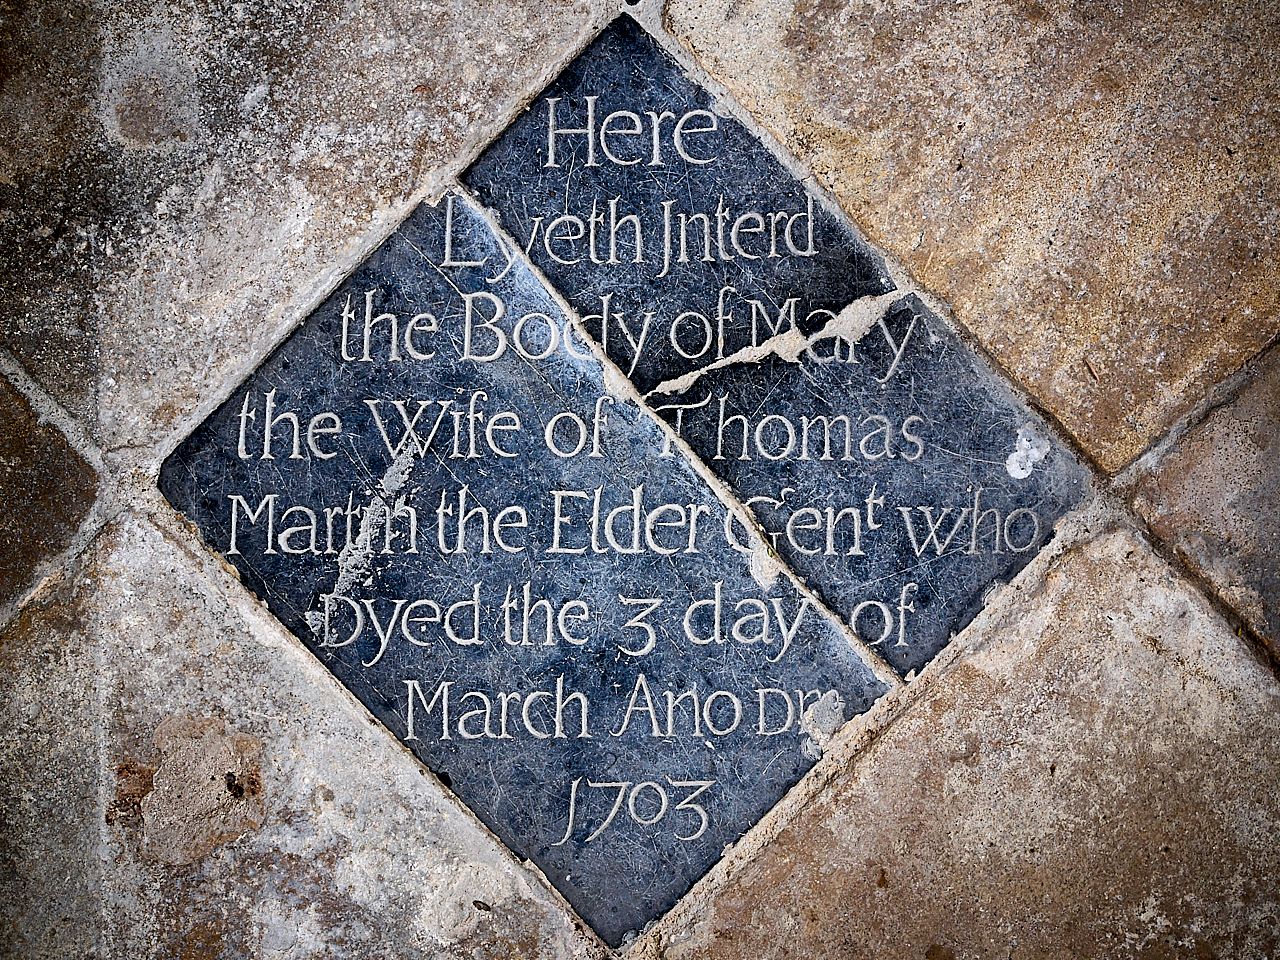 Here
Lyeth Interd
the Body of Mary
the Wife of Thomas
Martin the Elder Gent who
Dyed the 3 day of
March Ano Dm
1703